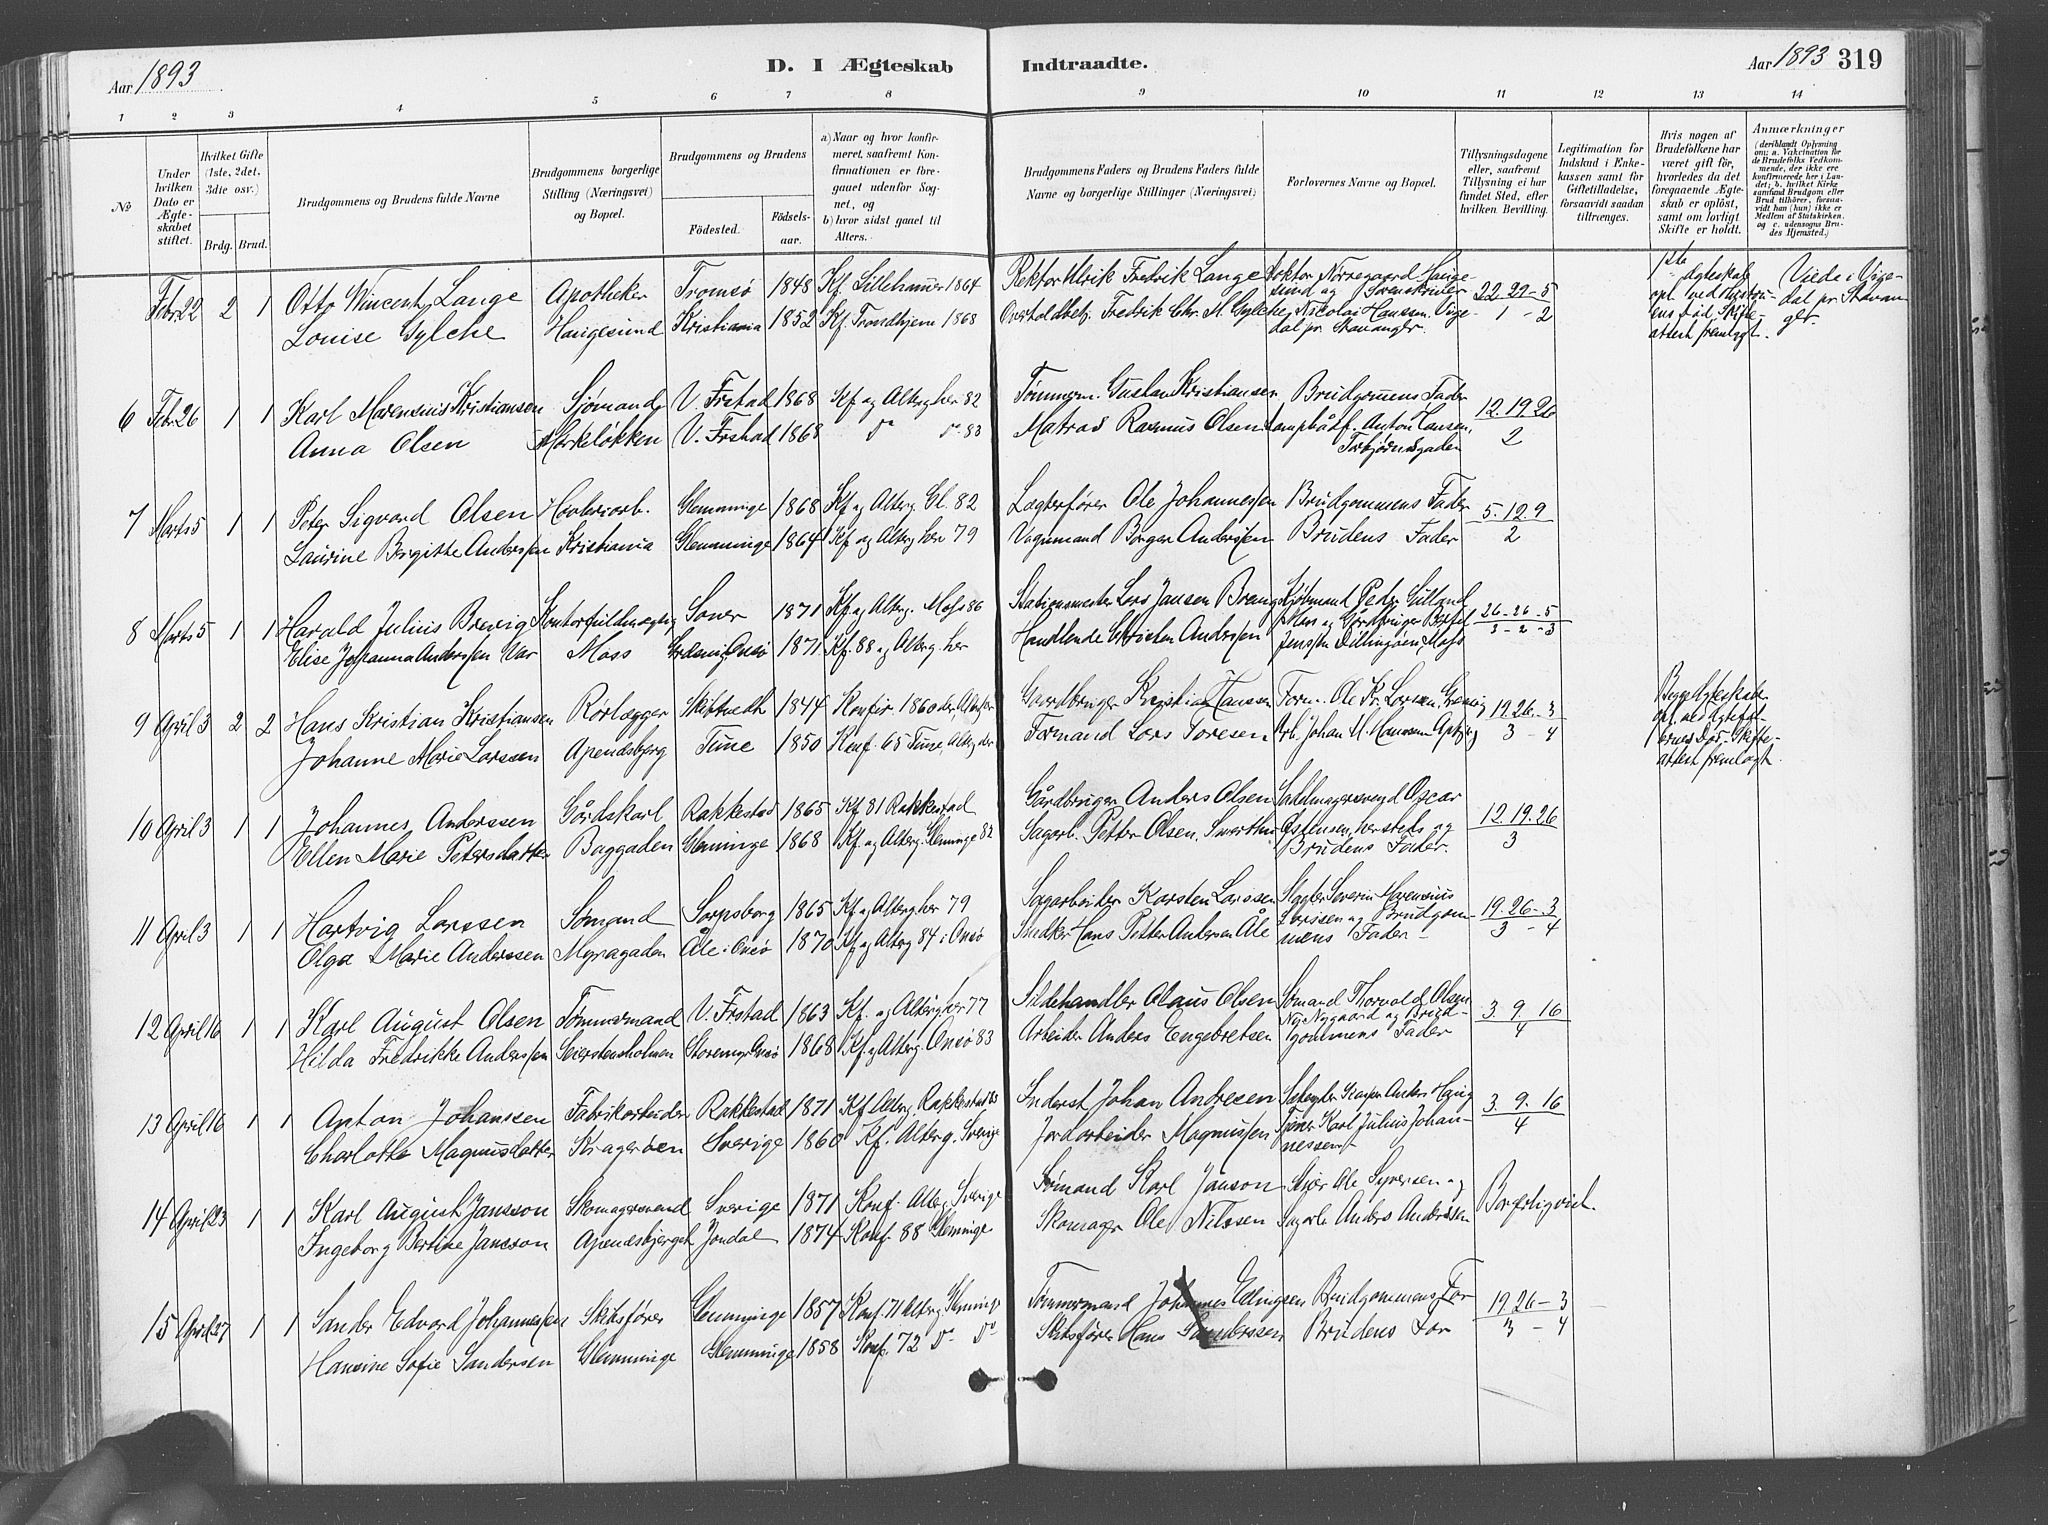 Aar 1893
D. I Ægteskab
Indtraadte.
Aar 1893 319
1 2 3 4 5 6 7 8 9 10 11 12 13 14
№
Under hvilken Dato er Ægteskabet stiftet.
Hvilket Gifte (1ste, 2det, 3die osv.)
Brdg. Brud.
Brudgommens og Brudens fulde Navne
Brudgommens borgerlige Stilling (Næringsvei) og Bopæl.
Brudgommens og Brudens
Fødested.
Fødselsaar.
a) Naar og hvor konfirmeret, saafremt Konfirmationen er foregaaet udenfor Sognet, og
b) hvor sidst gaaet til Alters.
Brudgommens Faders og Brudens Faders fulde Navne og borgerlige Stillinger (Næringsvei)
Forlovernes Navne og Bopæl.
Tillysningsdagene eller, saafremt Tillysning ei har fundet Sted, efter hvilken Bevilling.
Legitimation for Indskud i Enkekassen samt for Giftetilladelse, forsaavidt saadan tiltrænges.
Hvis nogen af Brudefolkene har været gift før, hvorledes da det foregaaende Ægteskab er opløst, samt om lovligt Skifte er holdt.
Anmærkninger
(deriblandt Oplysning om: a. Vaccination for de Brudefolks Vedkommende, der ikke ere konfirmerede her i Landet; b. hvilket Kirkesamfund Brudgom eller Brud tilhører, forsaavidt han (hun) ikke er Medlem af Statskirken, og c. udensogns Brudes Hjemsted.)
Febr 22 2 1 Otto Wincents Lange Apotheker Tromsø 1848 Kf. Lillehammer 1864 Rektor Ulrik Fredrik Lange Doktor Nørregaard Haugesund og 22 29 – 5
Louise Gylche Haugesund Kristiania 1852 Kf. Trondhjem 1868 Fredrik Chr. M. Gylche Nicolai Hanssen. Vigedal pr. Stavanger 1 – 2
1ste Ægteskab opl. ved Hustruens Død Skifteattest fremlagt.
Viede i Vigedal pr. Stavanger.
6 Febr 26 1 1 Karl Marensius Kristiansen Sjømand V. Frstad 1868 Kf. og Alterg. her 82 Tømmerm. Gustav Kristiansen Brudgommens Fader 12. 19. 26
Anna Olsen Markeløkken V. Frstad 1868 do do 83 Matros Rasmus Olsen Anton Hansen, Torbjørnsgaden 2
7 Marts 5 1 1 Peter Sigvard Olsen Høvleriarb. Glemminge 1868 Kf. og Alterg. Gl. 82 Lægterfører Ole Johannessen Brudgommens Fader 5. 12. 9
Laurine Birgitte Anderssen Kristiania Glemminge 1864 Kf. og Alterg her 79 Vognmand Børger Anderssen Brudens Fader 2
8 Marts 5 1 1 Harald Julius Brevig Kontorfuldmægtig Soner 1871 Kf. og Alterg. Moss 86 Stationsmester Lars Jansen Kjøbmand Peder 26 – 26 – 5
Elise Johanna Anderssen Var Moss Onsø 1871 Kf. 88 og Alterg. her Handlende Christen Anderssen Jenssen Dillingøen, Moss 3 – 2 – 3
9 April 3 2 2 Hans Kristian Kristiansen Rørlægger Skiptvedt 1844 Konfir. 1860 der, Gaardbruger Kristian Hanssen Form. Ole Kr. Larssen, 19. 26 – 3
Johanne Marie Larssen Apenesbjerg Tune 1850 Konf. 65 Tune, Alterg. der Formand Lars Toresen Arb. Johan M. Hanssen 3 – 4
Begge Ægteskaber opl. ved Ægtefællernes Død – Skifteattest fremlagt.
10 April 3 1 1 Johannes Anderssen Gårdskarl Rakkestad 1865 Kf. 81 Rakkestad Gårdbruger Anders Olsen Sadelmagersvend Oscar 12. 19. 26
Ellen Marie Petersdatter Baggaden Glemminge 1868 Kf. og Alterg. Glemminge 82 Sagarb. Petter Olsen og Brudens Fader. 3
11 April 3 1 1 Hartvig Larssen Sømand Sarpsborg 1865 Kf. og Alterg. her 79 Sagarbeider Karsten Larssen Slagter Severin Marensius 19. 26 – 3
Olga Marie Anderssen Myragaden Åle i Onsø 1870 Kf. og Alterg 84 i Onsø Snedker Hans Petter Andersen Åle Larssen og Brudgommens Fader – 3 – 4
12 April 16 1 1 Karl August Olsen Tømmermand V. Frstad 1863 Kf. og Alterg. her 77 Sildehandler Olaus Olsen Sømand Thorvald Olsen 3. 9. 16
Hilda Fredrikke Anderssen Seierstensholmen Storemyr Onsø 1868 Kf. og Alterg. Onsø 83 Arbeider Anders Engebretsen Ny Nygaard og Brudgommens Fader 4
13 April 16 1 1 Anton Johanssen Fabrikarbeider Rakkestad 1871 Kf. Alterg. Rakkestad Inderst Johan Andresen Anders Haug 3. 9. 16
Charlotte Magnusdatter Kragerøen Sverige 1860 Kf. Alterg. Sverige Jordarbeider Magnussen Tjener Karl Julius Johannessen 4
14 April 23 1 1 Karl August Jansson Skomagersvend Sverige 1871 Konf. Alterg. Sverige Sømand Karl Janson Ole Syversen og
Ingeborg Bertine Jansson Apenesbjerget Jondal 1874 Konf. 88 Glemminge Skomager Ole Nilssen Sagarb. Anders Anderssen
15 April 27 1 1 Sander Edvard Johannessen Skibsfører Glemminge 1857 Konf. 71 Alterg. Glemminge Tømmermand Johannes Edingsen Brudgommens Far 19. 26 – 3
Hansine Sofie Sandersen Glemminge Glemminge 1858 Konf. 72 do do Skibsfører Hans Sanderssen Brudens Far 3 – 4